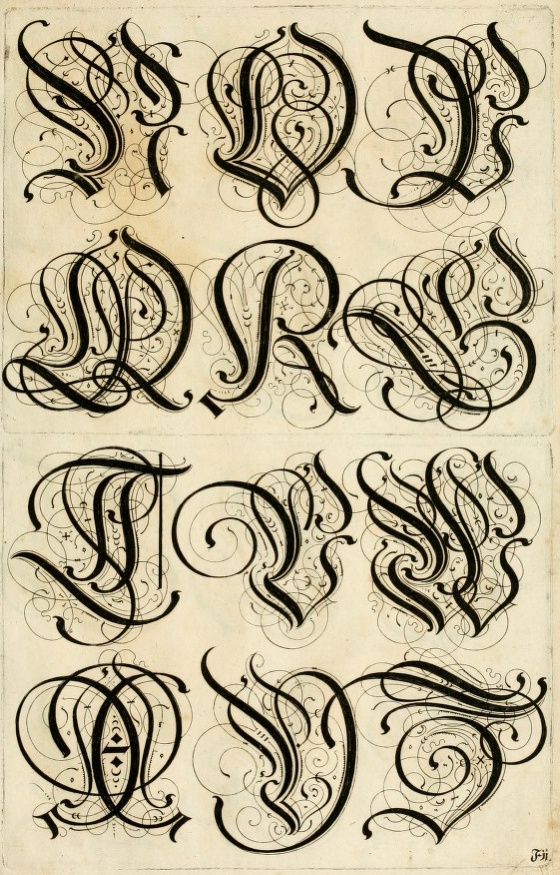 N O P
Q R S
T V W
X Y Z